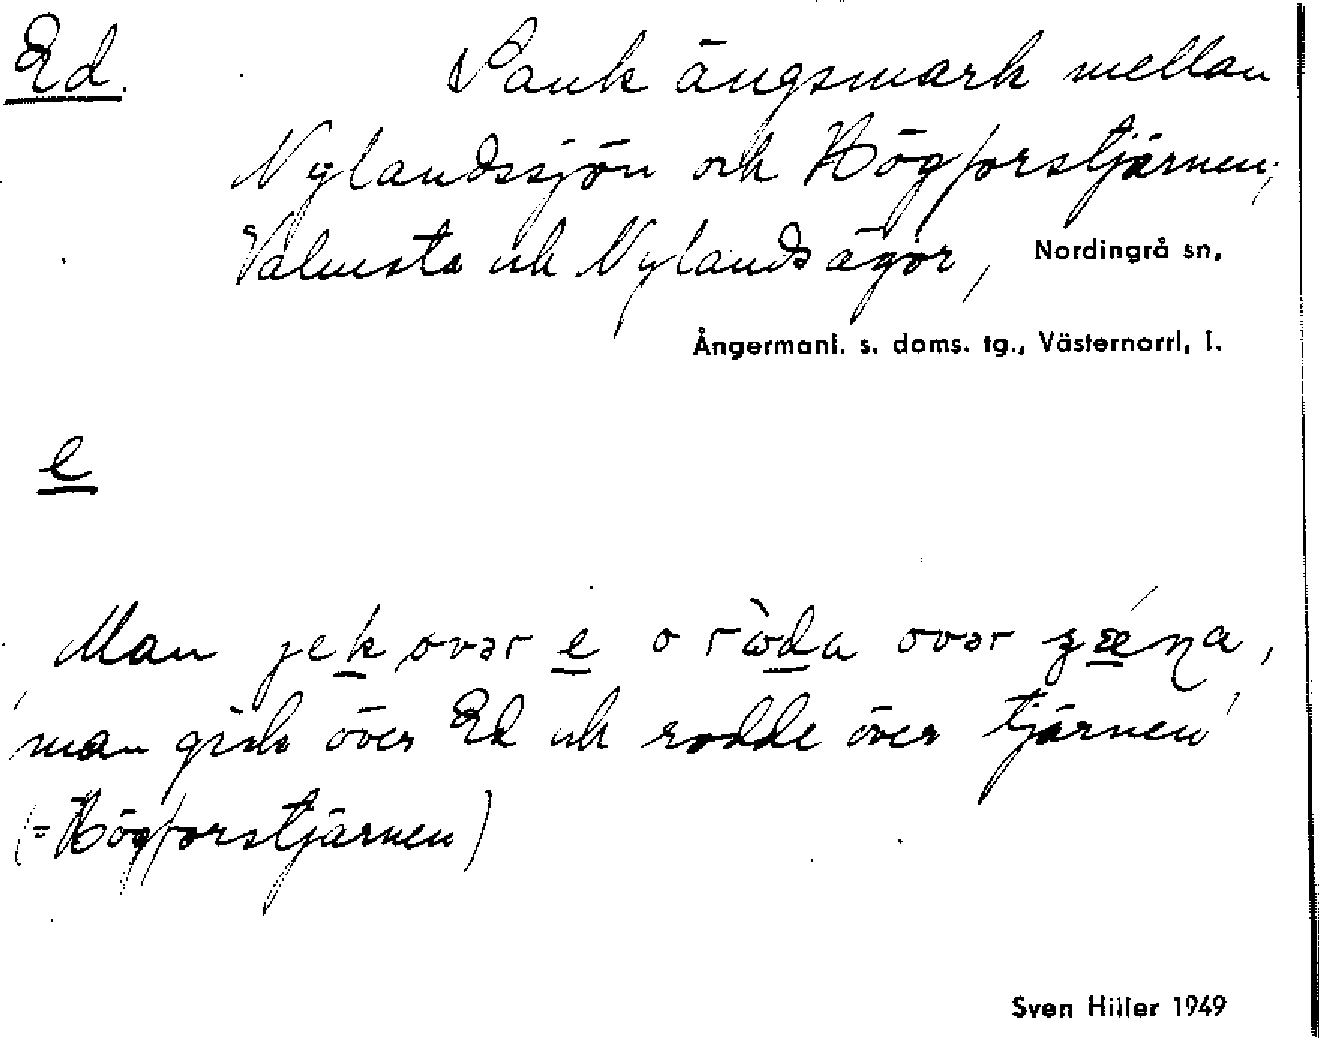 Ed. Sank ängsmark mellan
Nylandssjön och Högforstjärnen;
Valmsta och Nylands ägor, Nordingrå sn,
Ångermanl. s. doms. tg., Västernorrl. l.
e
Man jek ovər e o ròda ovər
man gick över Ed och rodde över tjärnen'
(=Högforstjärnen)
Sven Hiller 1949